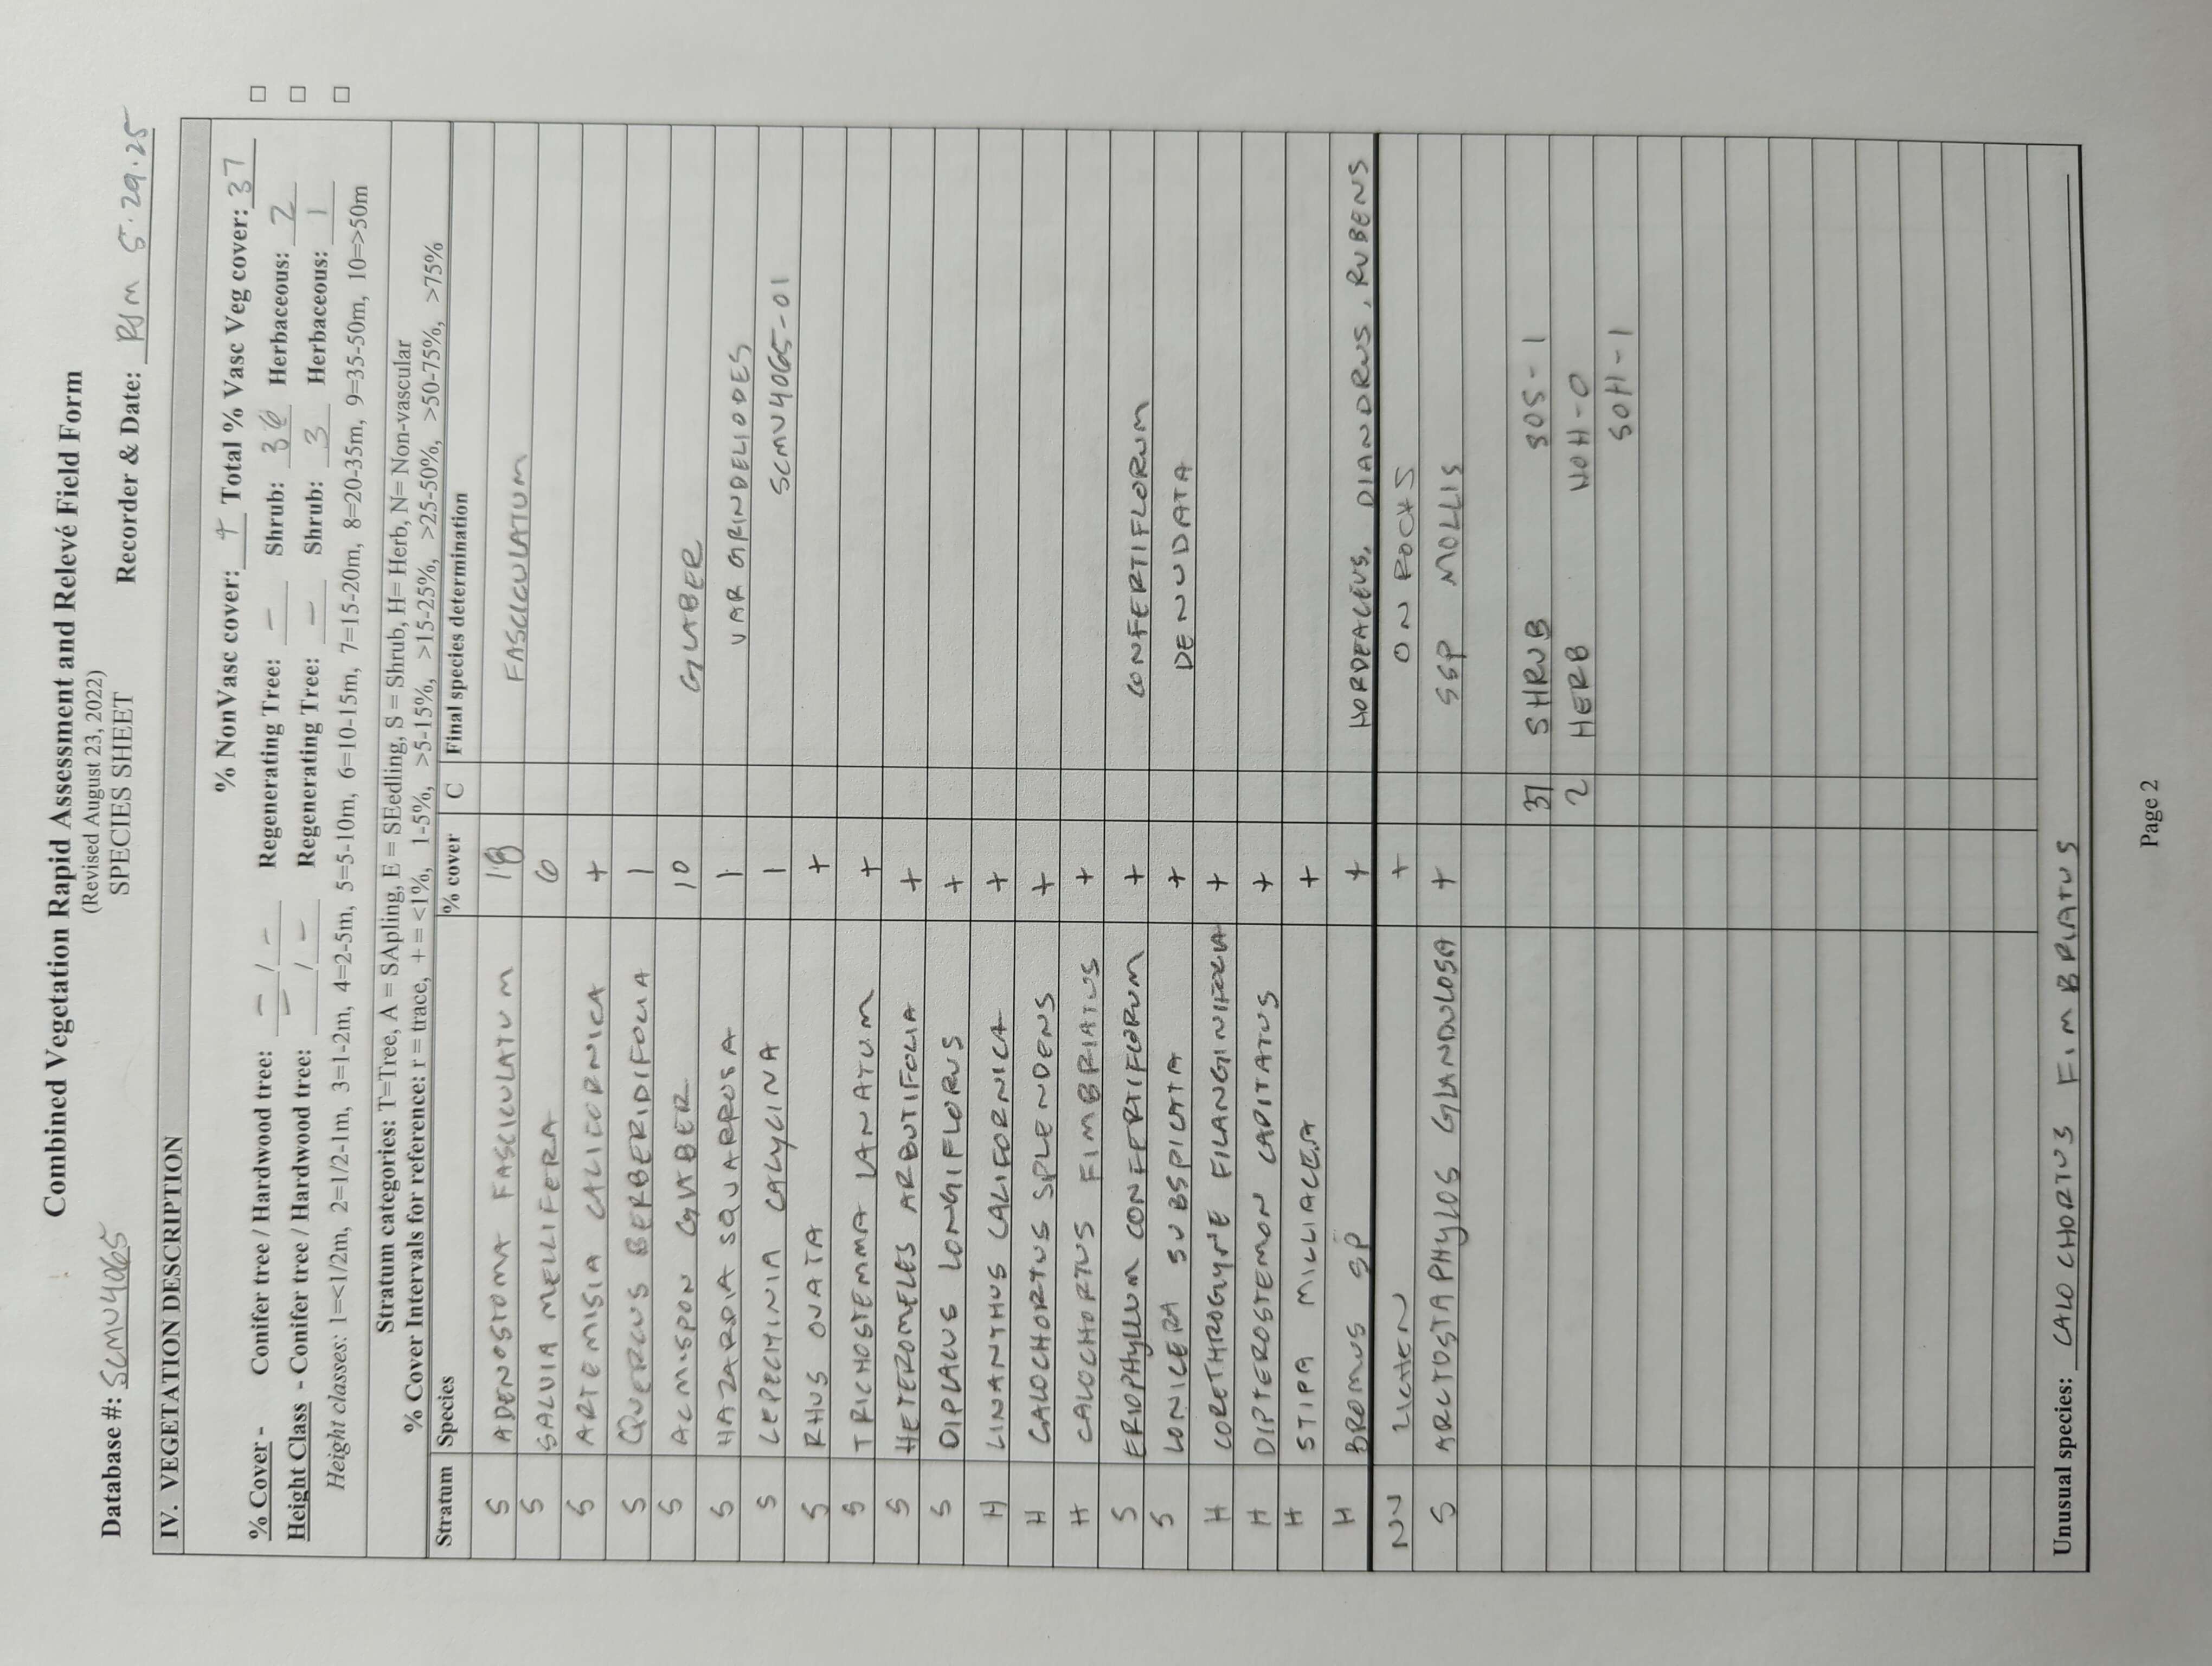 Combined Vegetation Rapid Assessment and Relevé Field Form
(Revised August 23, 2022)
SPECIES SHEET
Database #: SCMU4065 Recorder & Date: RJM 5·29·25
IV. VEGETATION DESCRIPTION
% NonVasc cover: + Total % Vasc Veg cover: 37
% Cover - Conifer tree / Hardwood tree: — / — Regenerating Tree: — Shrub: Herbaceous: 2
Height Class - Conifer tree / Hardwood tree: — / — Regenerating Tree: — Shrub: 3 Herbaceous: 1
Height classes: 1=<1/2m, 2=1/2-1m, 3=1-2m, 4=2-5m, 5=5-10m, 6=10-15m, 7=15-20m, 8=20-35m, 9=35-50m, 10=>50m
Stratum categories: T=Tree, A = SApling, E = SEedling, S = Shrub, H= Herb, N= Non-vascular
% Cover Intervals for reference: r = trace, + = <1%, 1-5%, >5-15%, >15-25%, >25-50%, >50-75%, >75%
Stratum Species % cover C Final species determination
S ADENOSTOMA FASCICULATUM 18 FASCICULATUM
S SALVIA MELLIFERA 6
S ARTEMISIA CALIFORNICA +
S QUERCUS BERBERIDIFOLIA 1
S ACMISPON GLABER 10 GLABER
S HAZARDIA SQUARROSA 1 VAR GRINDELIODES
S LEPECHINIA CALYCINA 1 SCMU4065-01
S RHUS OVATA +
S TRICHOSTEMMA LANATUM +
S HETEROMELES ARBUTIFOLIA +
S DIPLACUS LONGIFLORUS +
H LINANTHUS CALIFORNICA +
H CALOCHORTUS SPLENDENS +
H CALOCHORTUS FIMBRIATUS +
S ERIOPHYLLUM CONFERTIFLORUM + CONFERTIFLORUM
S LONICERA SUBSPICATA + DENUDATA
H CORETHROGYNE FILANGINIFOLIA +
H DIPTEROSTEMON CAPITATUS +
H STIPA MILLIACEA +
H BROMUS SP + HORDEACEUS, DIANDRUS, RUBENS
NV LICHEN + ON ROCKS
S ARCTOSTAPHYLOS GLANDULOSA + SSP MOLLIS
37 SHRUB SOS-1
2 HERB NOH-0
SOH-1
Unusual species: CALOCHORTUS FIMBRIATUS
Page 2